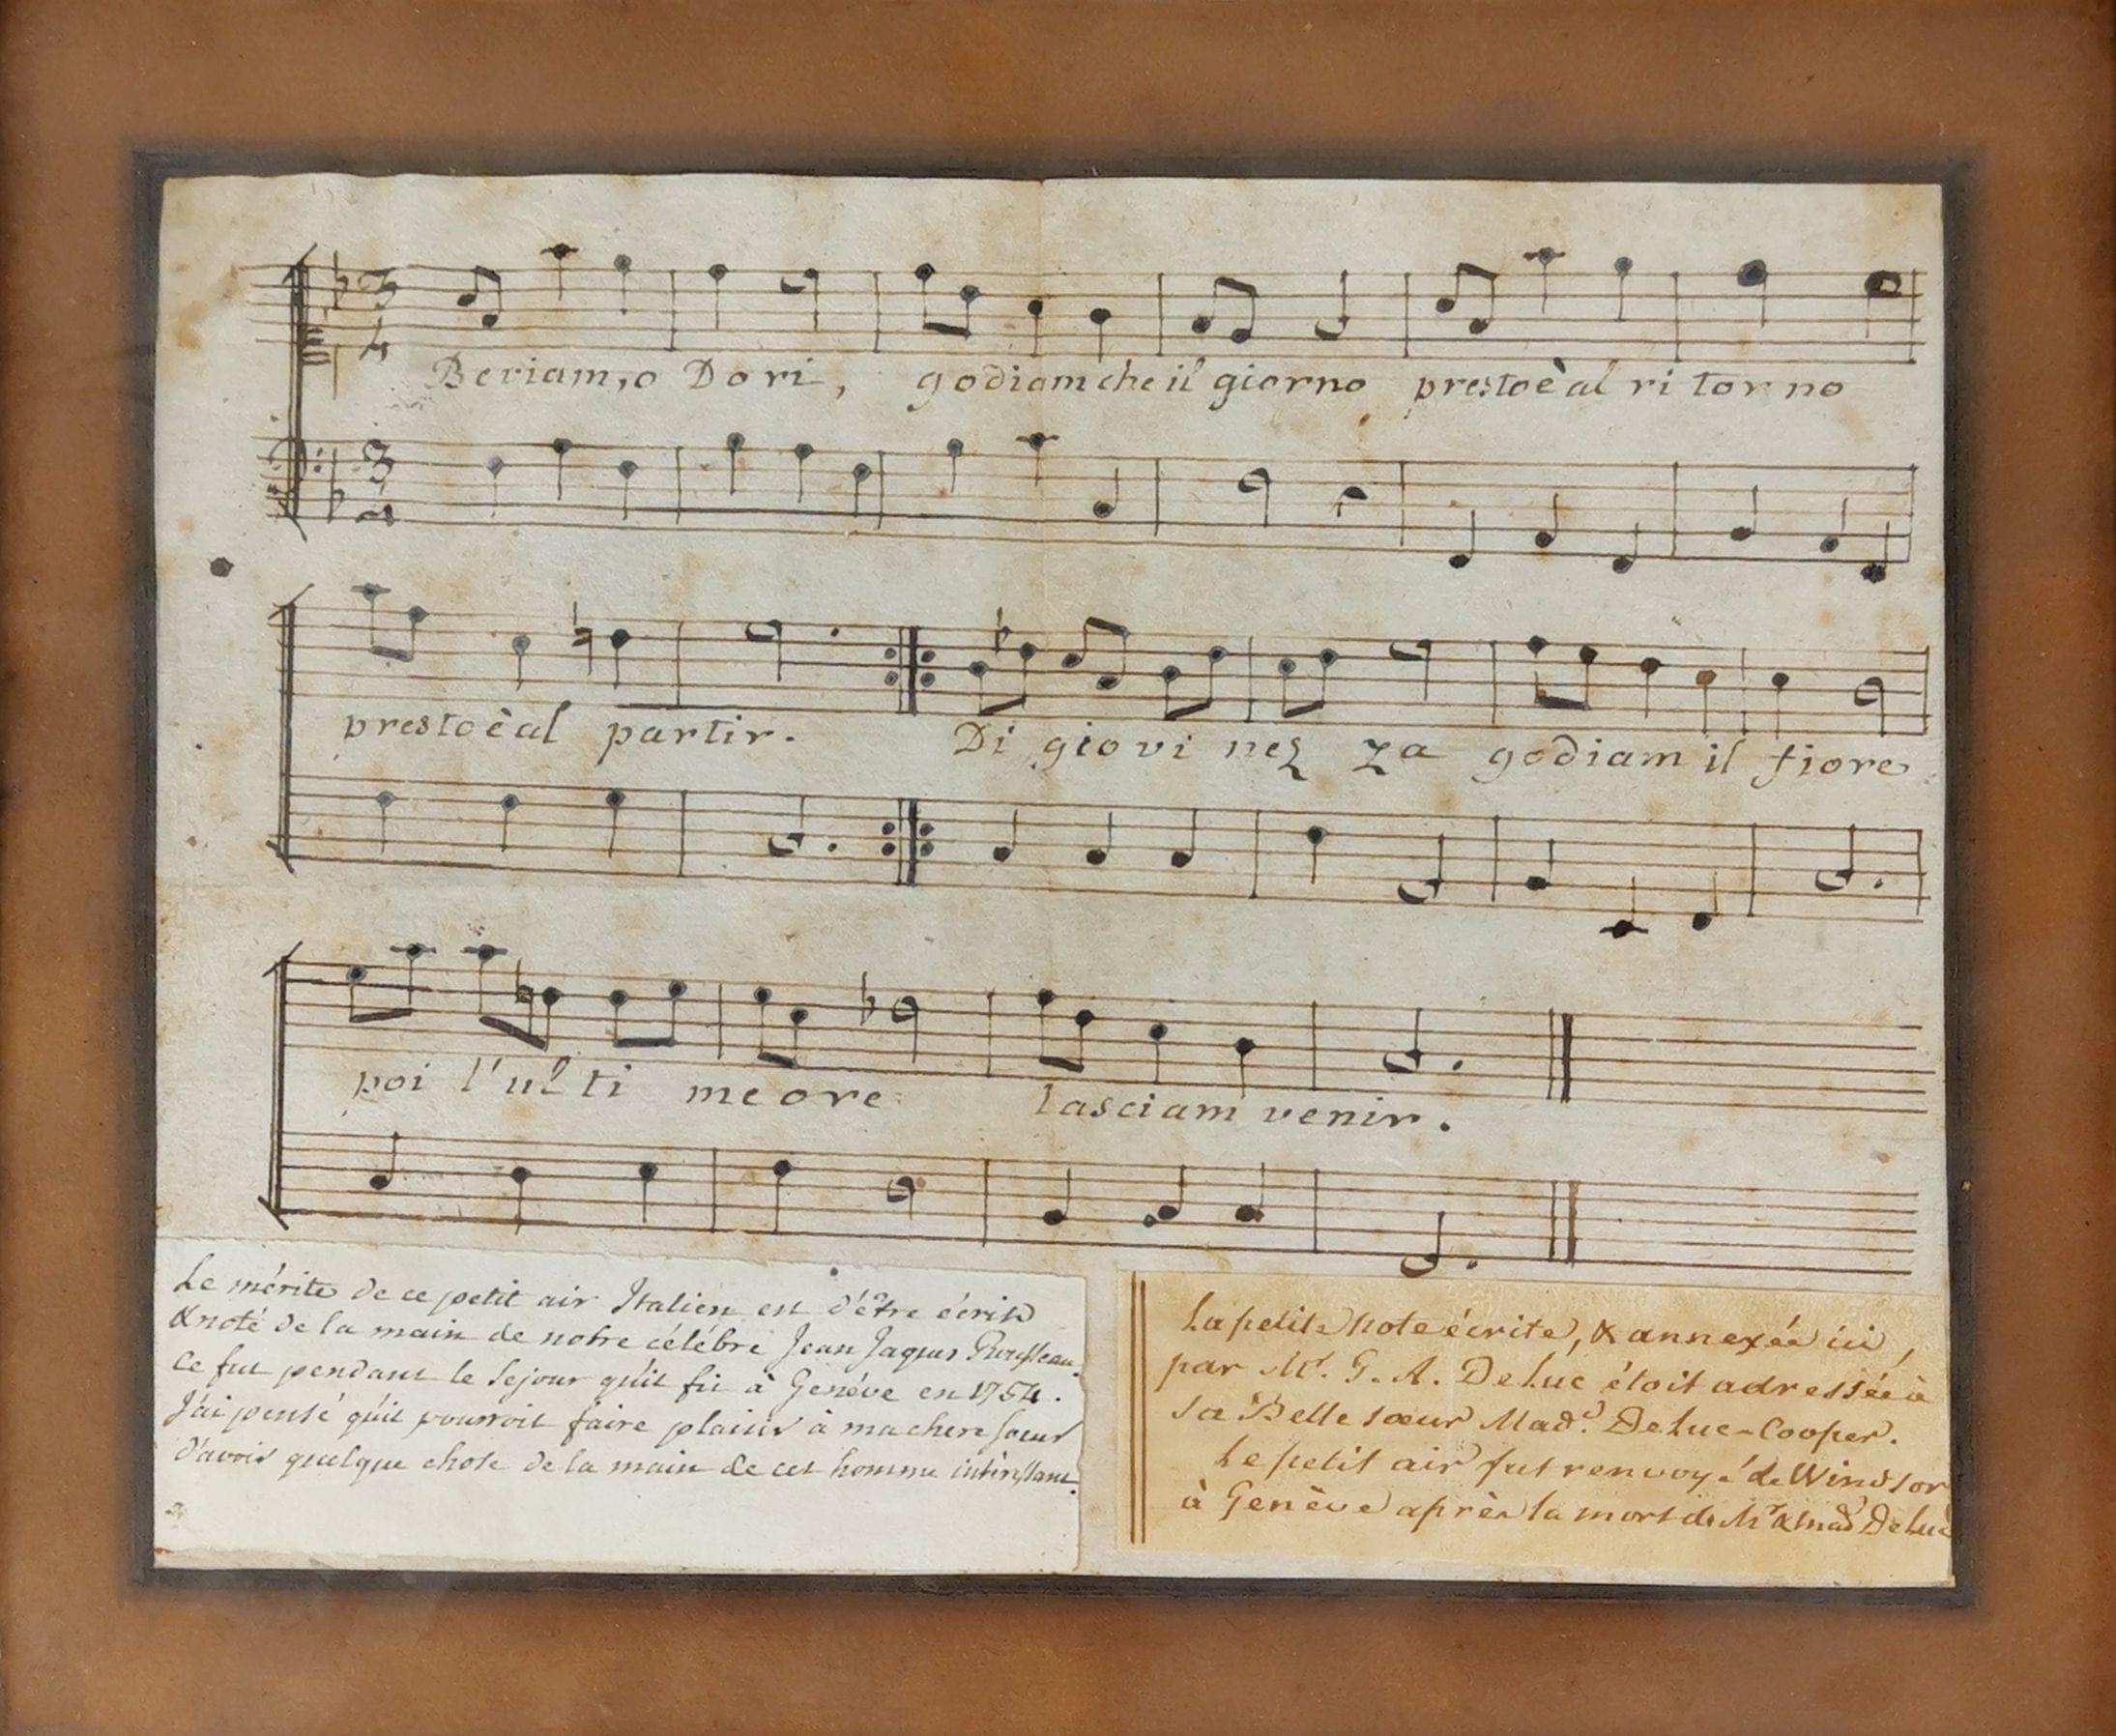 3 4
Beriam, o Dori, godiam che il giorno presto è al ri tor no
3 4
presto è al partir. Di gio vi nez za godiam il fiore
poi l'ul ti me ore lasciam venir.
Le mérite de ce petit air Italien est d'être écrit
& noté de la main de notre célébre Jean Jaques Rousseau
Ce fut pendant le sejour qu'il fit à Genéve en 1754.
J'ai pensé qu'il pourroit faire plaisir à ma chere soeur
d'avoir quelque chose de la main de cet homme intéressant.
La petite note écrite, & annexée ici,
par Mr. G. A. DeLuc étoit adressée à
sa Belle sœur Made. DeLuc-Cooper.
Le petit air fut renvoyé de Windsor
à Genève après la mort de Mr & Mad DeLuc